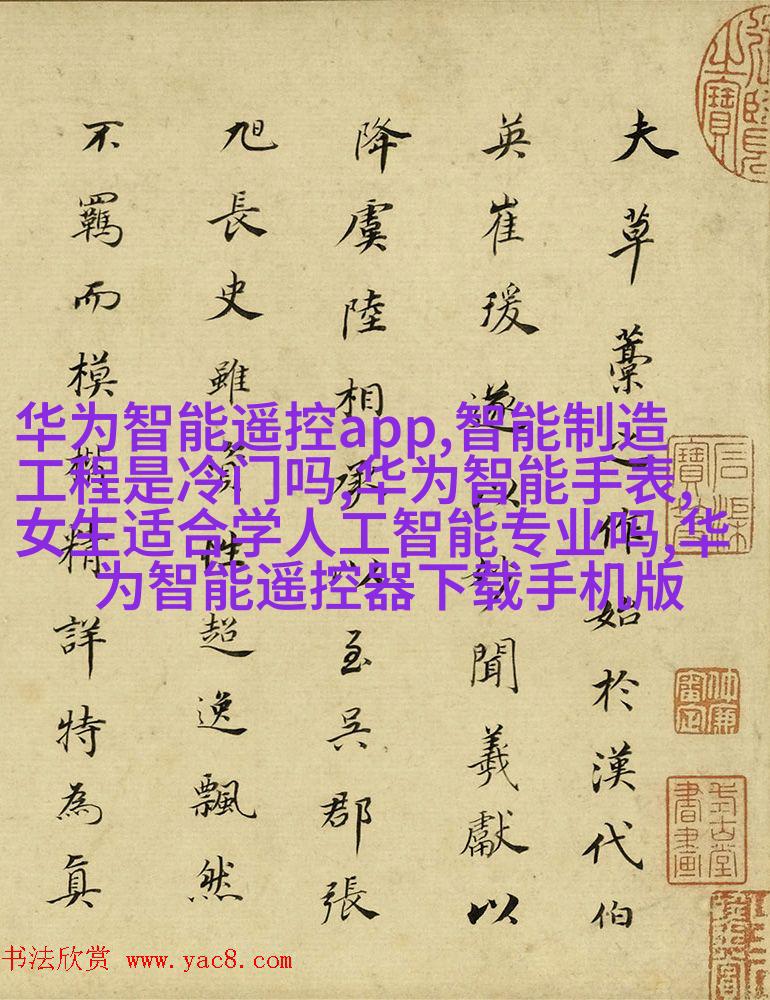 夫草藁之作始於漢代伯
英崔瑗遂以勢聞羲獻以
降虞陸相承以至吳郡張
旭長史雖資性超逸飄然
不羈而模楷精詳特為真
华为智能遥控app,智能制造
工程是冷门吗,华为智能手表,
女生适合学人工智能专业吗,华
为智能遥控器下载手机版
书法欣赏 www.yac8.com